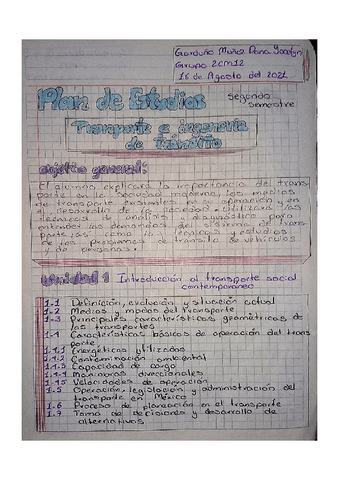 Garduño Muñoz Dana Jocelyn
Grupo 2CM12
16 de Agosto del 2021
Plan de Estudios
Segundo
semestre
Transporte e ingeniería
de tránsito
objetivo general:
El alumno explicará la importancia del trans
porte en la sociedad moderna, los medios
de transporte existentes en su operación y en
el desarrollo de la sociedad. Utilizará las
técnicas de análisis y diagnóstico para
entender las demandas del sistema de trans
porte, así como la técnicas y estudios
de los programas de tránsito de vehículos
y de personas.
Unidad 1 Introducción al transporte social
contemporáneo
1.1 Definición, evolución y situación actual
1.2 Medios y modos del transporte
1.3 Principales características geométricas de
los transportes
1.4 Características básicas de operación del trans
porte
1.4.1 Energéticos utilizados
1.4.2 Contaminación ambiental
1.4.3 Capacidad de carga
1.4.4 Maniobras direccionales
1.4.5 Velocidades de operación
1.5 Operación, legislación y administración del
transporte en México
1.6 Proceso de planeación en el transporte
1.7 Toma de decisiones y desarrollo de
alternativas